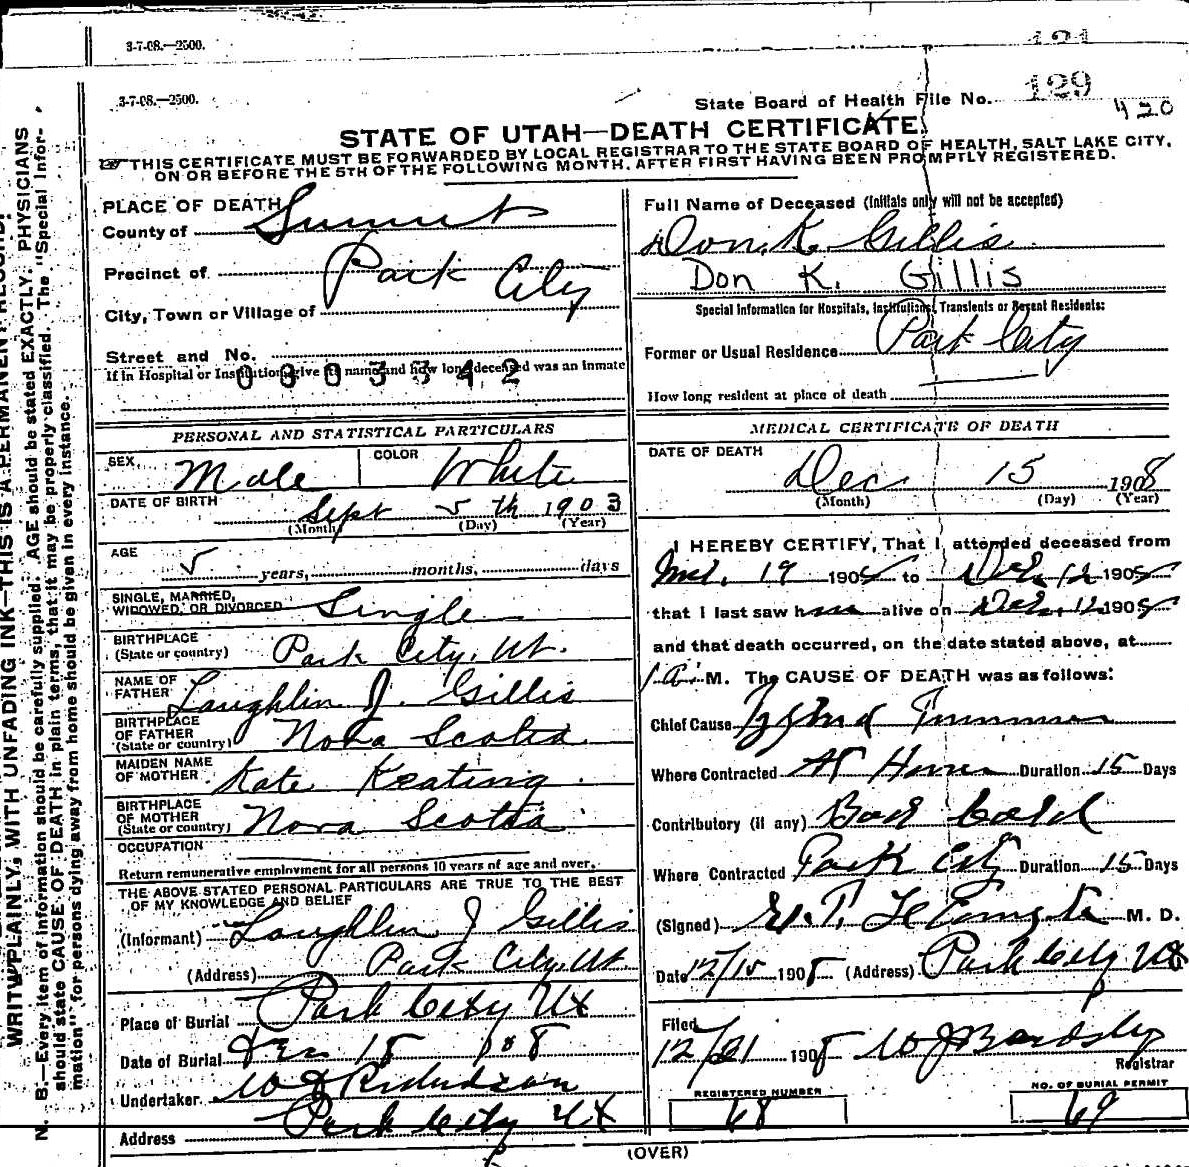 3-7-08.—2500.
3-7-08.—2500.
State Board of Health File No. 129
420
STATE OF UTAH—DEATH CERTIFICATE.
THIS CERTIFICATE MUST BE FORWARDED BY LOCAL REGISTRAR TO THE STATE BOARD OF HEALTH, SALT LAKE CITY,
ON OR BEFORE THE 5TH OF THE FOLLOWING MONTH, AFTER FIRST HAVING BEEN PROMPTLY REGISTERED.
PLACE OF DEATH
County of Summit
Precinct of Park City
City, Town or Village of
Street and No.
If in Hospital or Institution give its name and how long deceased was an inmate
0803342
PERSONAL AND STATISTICAL PARTICULARS
SEX Male COLOR White
DATE OF BIRTH Sept 5th 1903
(Month) (Day) (Year)
AGE 5 years, months, days
SINGLE, MARRIED,
WIDOWED, OR DIVORCED Single
BIRTHPLACE
(State or country) Park City, Ut.
NAME OF
FATHER Laughlin J. Gillis
BIRTHPLACE
OF FATHER
(State or country) Nova Scotia
MAIDEN NAME
OF MOTHER Kate Keating
BIRTHPLACE
OF MOTHER
(State or country) Nova Scotia
OCCUPATION
Return remunerative employment for all persons 10 years of age and over.
THE ABOVE STATED PERSONAL PARTICULARS ARE TRUE TO THE BEST
OF MY KNOWLEDGE AND BELIEF
(Informant) Laughlin J Gillis
(Address) Park City, Ut.
Place of Burial Park City Ut
Date of Burial Dec 18 1908
Undertaker W J Richardson
Address Park City Ut
Full Name of Deceased (Initials only will not be accepted)
Don. K. Gillis
Don K. Gillis
Special Information for Hospitals, Institutions, Transients or Recent Residents:
Former or Usual Residence Park City
How long resident at place of death
MEDICAL CERTIFICATE OF DEATH
DATE OF DEATH
Dec 15 1908
(Month) (Day) (Year)
I HEREBY CERTIFY, That I attended deceased from
19 190 to 12 190
that I last saw h alive on 12 190
and that death occurred, on the date stated above, at
1 a. M. The CAUSE OF DEATH was as follows:
Chief Cause
Where Contracted At Home Duration 15 Days
Contributory (if any) Bad Cold
Where Contracted Park City Duration 15 Days
(Signed) M. D.
Date 12/15 1908 (Address) Park City Ut
Filed
12/21 1908 W J Bardsley
Registrar
REGISTERED NUMBER
68
NO. OF BURIAL PERMIT
69
(OVER)
WRITE PLAINLY, WITH UNFADING INK—THIS IS A PERMANENT RECORD.
N. B.—Every item of information should be carefully supplied. AGE should be stated EXACTLY. PHYSICIANS
should state CAUSE OF DEATH in plain terms, that it may be properly classified. The "Special Infor-
mation" for persons dying away from home should be given in every instance.